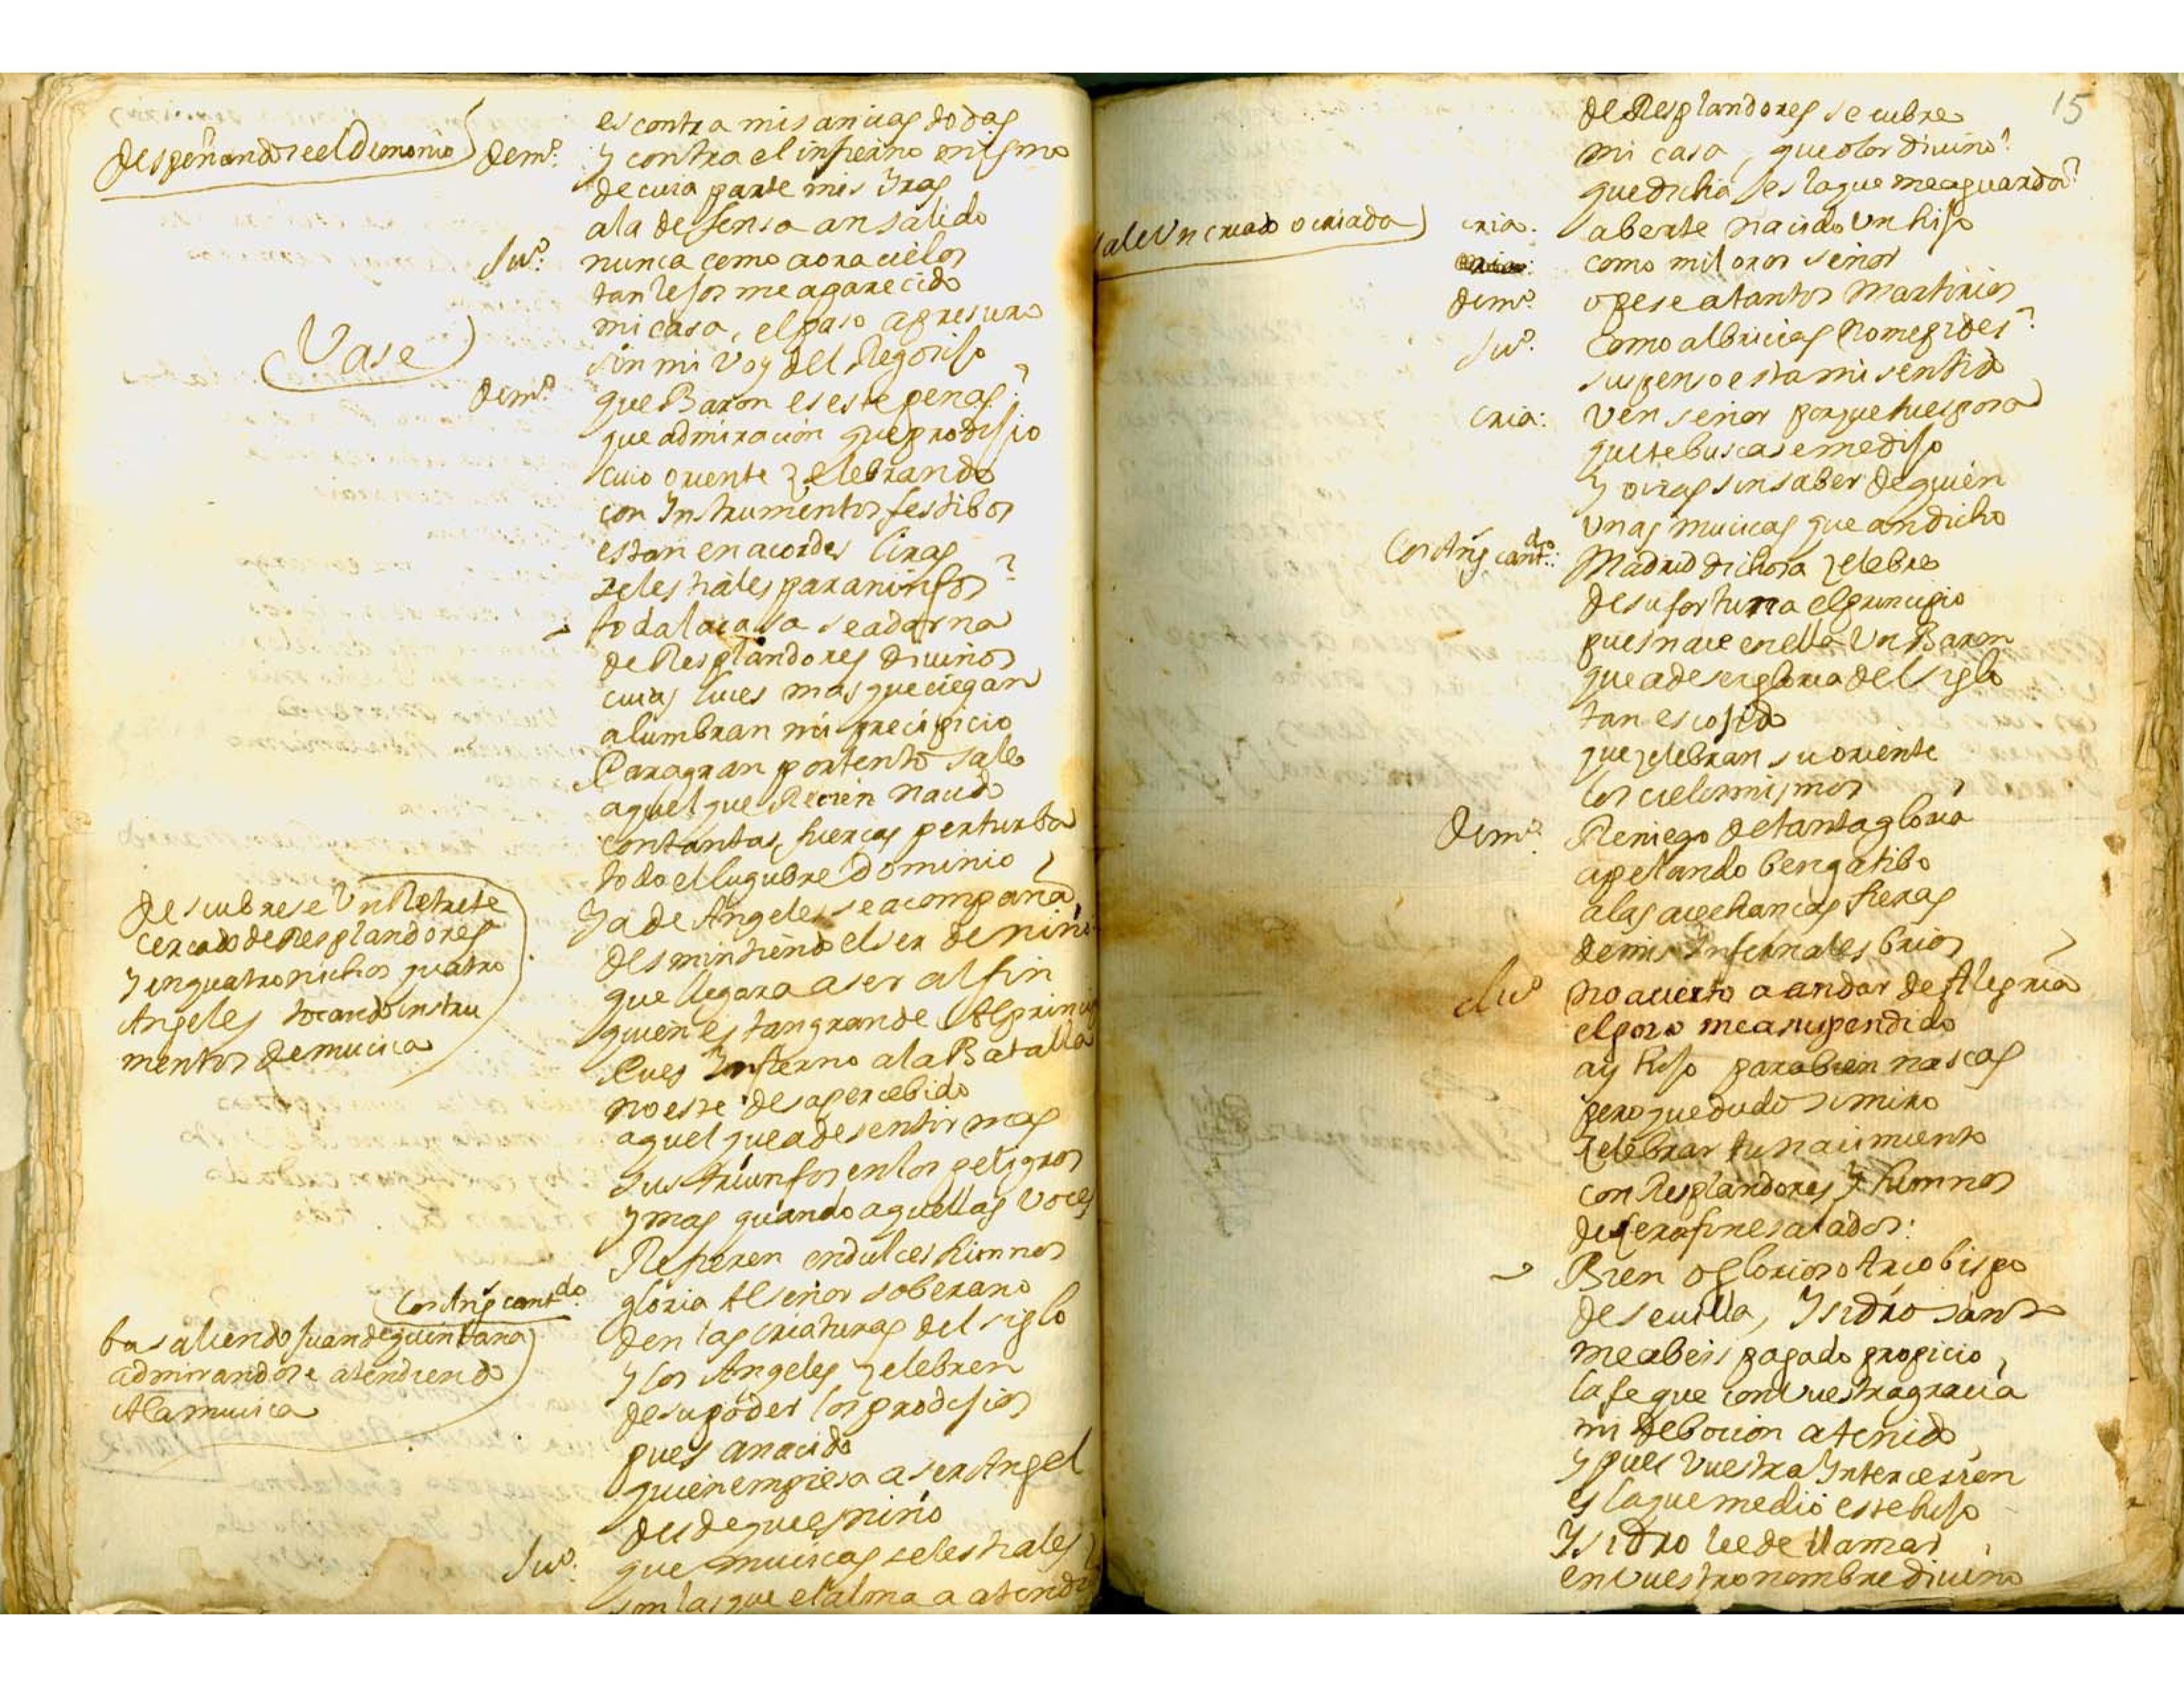 es contra mis ancias todas
despeñandose el Demonio dem.o y contra el infierno mismo
de cuia parte mis Yras
a la defensa an salido
Ju.o nunca como aora cielos
tan lejos me a parecido
mi casa, el paso apresuro
Vase sin mi voy del Regosijo
dem.o que Baron es este penas?
que admiracion que prodijio
cuio oriente zelebrando
con Ynstrumentos festibos
estan en acordes liras
zelestiales paraninfos?
toda la casa se adorna
de Resplandores diuinos
cuias luces mas que ciegan
alumbran mi precipicio
Para gran portento sale
aquel que Recien nacido
con tantas fuercas perturba
todo el lugubre Dominio
Descubrese Vn Retrete
cercado de Resplandores
y en quatro nichos quatro
Angeles tocando instru
mentos de mucica
Ya de Angeles se acompaña
desmintiendo el ser de niño
que llegara a ser al fin
quien es tan grande Al princi
Pues Ynfierno a la Batalla
no este desapercebido
aquel que a de sentir mas
sus triunfos en los peligros
y mas quando aquellas voces
Refieren en dulces himnos
Los Ang cant.do gloria Al señor soberano
ba saliendo Juan de quintana
admirandose atendiendo
A la mucica
den las criaturas del siglo
y los Angeles zelebren
de su poder los prodijios
pues a nacido
quien empiesa a ser Angel
desde que es niño
Ju.o que mucicas selestiales
son las que el alma a atendi
15
de Resplandores se cubre
mi casa, que olor diuino?
que dicha es la que me aguarda?
sale Vn criado o criada cria. aberte nacido Vn hijo
como mil oros señor
dem.o o pese a tantos martirios
Ju.o Como albricias no me pides?
suspenso esta mi sentido
cria: Ven señor porque mi señora
que te buscase me dijo
y oiras sin saber de quien
Vnas mucicas que an dicho
Los Ang cant.do: Madrid dichosa zelebre
de su fortuna el principio
pues nace en ella Vn Baron
que a de ser gloria del siglo
tan escojido
que zelebran su oriente
los cielos mismos
Dem.o Reniego de tanta gloria
apelando bengatibo
a las acechancas fieras
de mis Infernales brios
Ju.o no acierto a andar de Alegria
el goso me a suspendido
ay hijo para bien nascas
pero que dudo si miro
zelebrar tu nacimiento
con Resplandores y himnos
de serafines alados:
Bien o glorioso Arcobispo
de seuilla, Ysidro santo
me abeis pagado propicio
la fe que con vuestra gracia
mi debocion a tenido
y pues vuestra Yntercession
es la que me dio este hijo
Ysidro le e de llamar
en vuestro nombre diuino